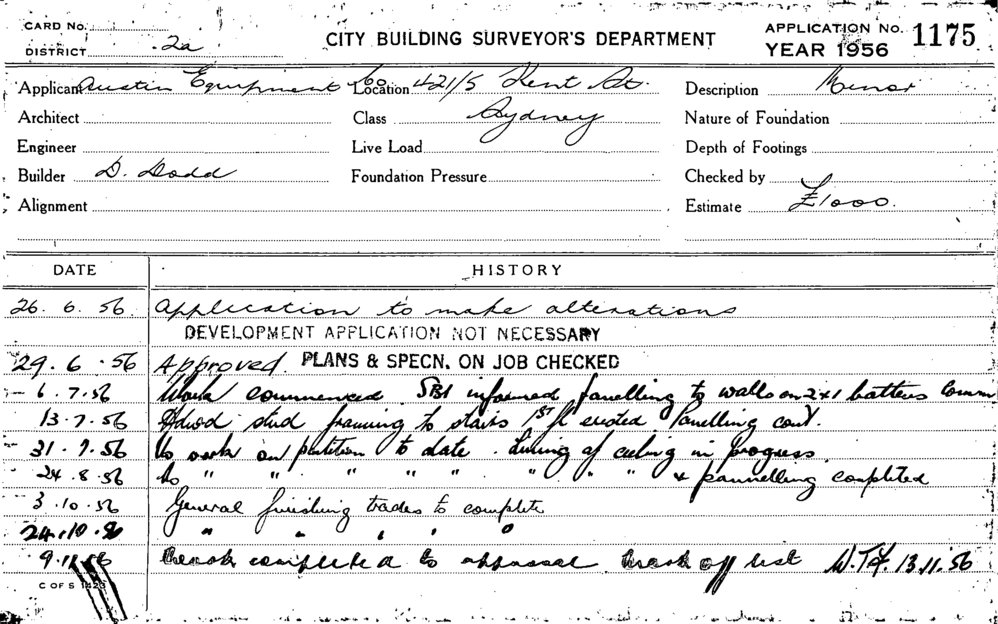 CARD No.
DISTRICT 2a
CITY BUILDING SURVEYOR'S DEPARTMENT
APPLICATION No. 1175
YEAR 1956
Applicant Austin Equipment Co Location 421/5 Kent St. Description Minor
Architect Class Sydney Nature of Foundation
Engineer Live Load Depth of Footings
Builder D. Dodd Foundation Pressure Checked by
Alignment Estimate £1000.
DATE HISTORY
26. 6. 56 Application to make alterations
DEVELOPMENT APPLICATION NOT NECESSARY
29. 6. 56 Approved. PLANS & SPECN. ON JOB CHECKED
6. 7. 56 Work commenced. informed panelling to walls on 2x1 battens
13. 7. 56 stud framing to stairs 1ST fl erected. Panelling cont.
31. 7. 56 No work on partition to date. Lining of ceiling in progress.
24. 8. 56 No " " " " " " " " & pannelling completed
3. 10. 56 General finishing trades to complete
24. 10. 56 " " " "
9. 11. 56 Work completed to approval. off list W.T.H. 13.11.56
C OF S 1423